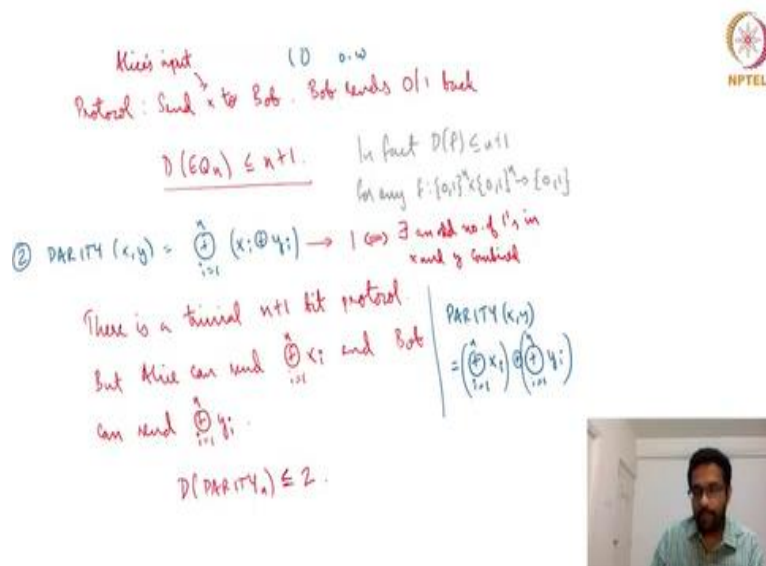 Alice's input
(0 o.w
Protocol : Send x to Bob. Bob sends 0/1 back
D(EQn) ≤ n+1.
In fact D(f) ≤ n+1
for any f: {0,1}^n × {0,1}^n → {0,1}
② PARITY (x,y) = ⊕_{i=1}^n (xi ⊕ yi) → 1 ⟺ ∃ an odd no. of 1's in
x and y combined
There is a trivial n+1 bit protocol.
But Alice can send ⊕_{i=1}^n xi and Bob
can send ⊕_{i=1}^n yi.
PARITY (x,y)
= (⊕_{i=1}^n xi) ⊕ (⊕_{i=1}^n yi)
D(PARITYn) ≤ 2.
NPTEL